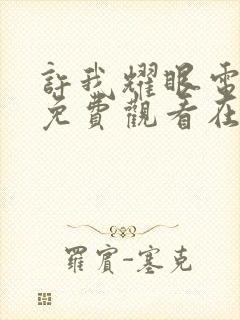 許我耀眼電
免費觀看在
羅賓-塞克